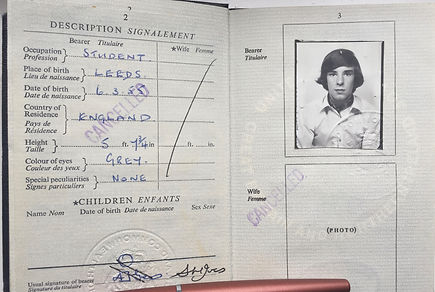 2
DESCRIPTION SIGNALEMENT
Bearer Titulaire
★Wife Femme
Occupation Profession STUDENT
Place of birth Lieu de naissance LEEDS.
Date of birth Date de naissance 6.3.
Country of Residence Pays de Résidence ENGLAND
Height Taille 5 ft. in. ft. in.
Colour of eyes Couleur des yeux GREY.
Special peculiarities Signes particuliers NONE
CANCELLED
★CHILDREN ENFANTS
Name Nom Date of birth Date de naissance Sex Sexe
Usual signature of bearer
Signature du titulaire
3
Bearer
Titulaire
Wife
Femme
CANCELLED
(PHOTO)